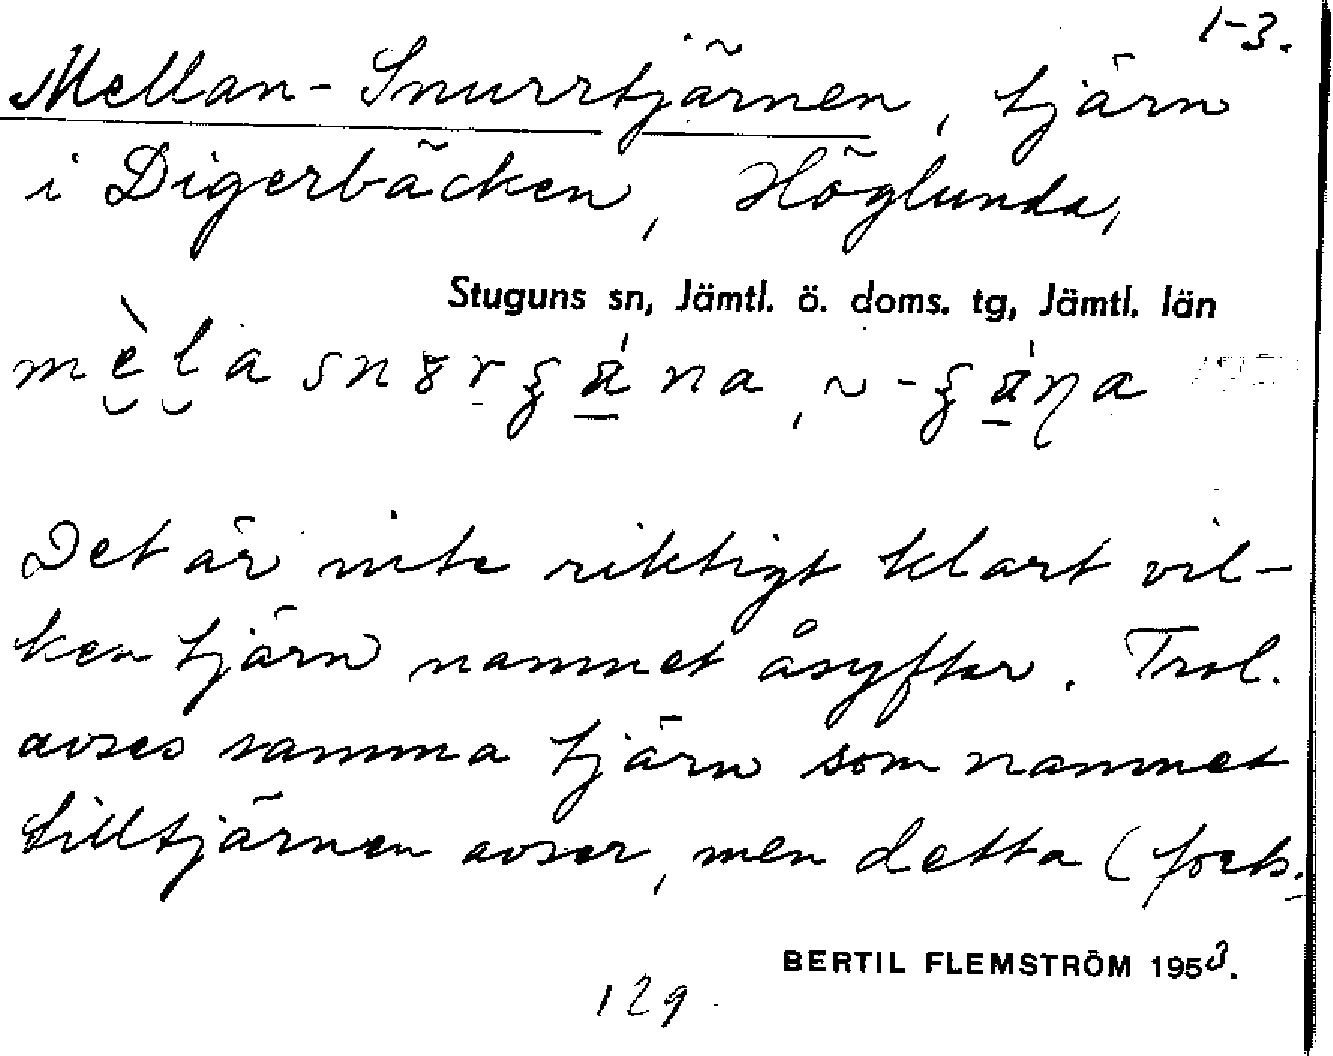 1-3.
Mellan-Snurrtjärnen, tjärn
i Digerbäcken, Höglunda,
Stuguns sn, Jämtl. ö. doms. tg, Jämtl. län
Det är inte riktigt klart vil-
ken tjärn namnet åsyftar. Trol.
avses samma tjärn som namnet
Lilltjärnen avser, men detta (forts.
BERTIL FLEMSTRÖM 1953.
129.